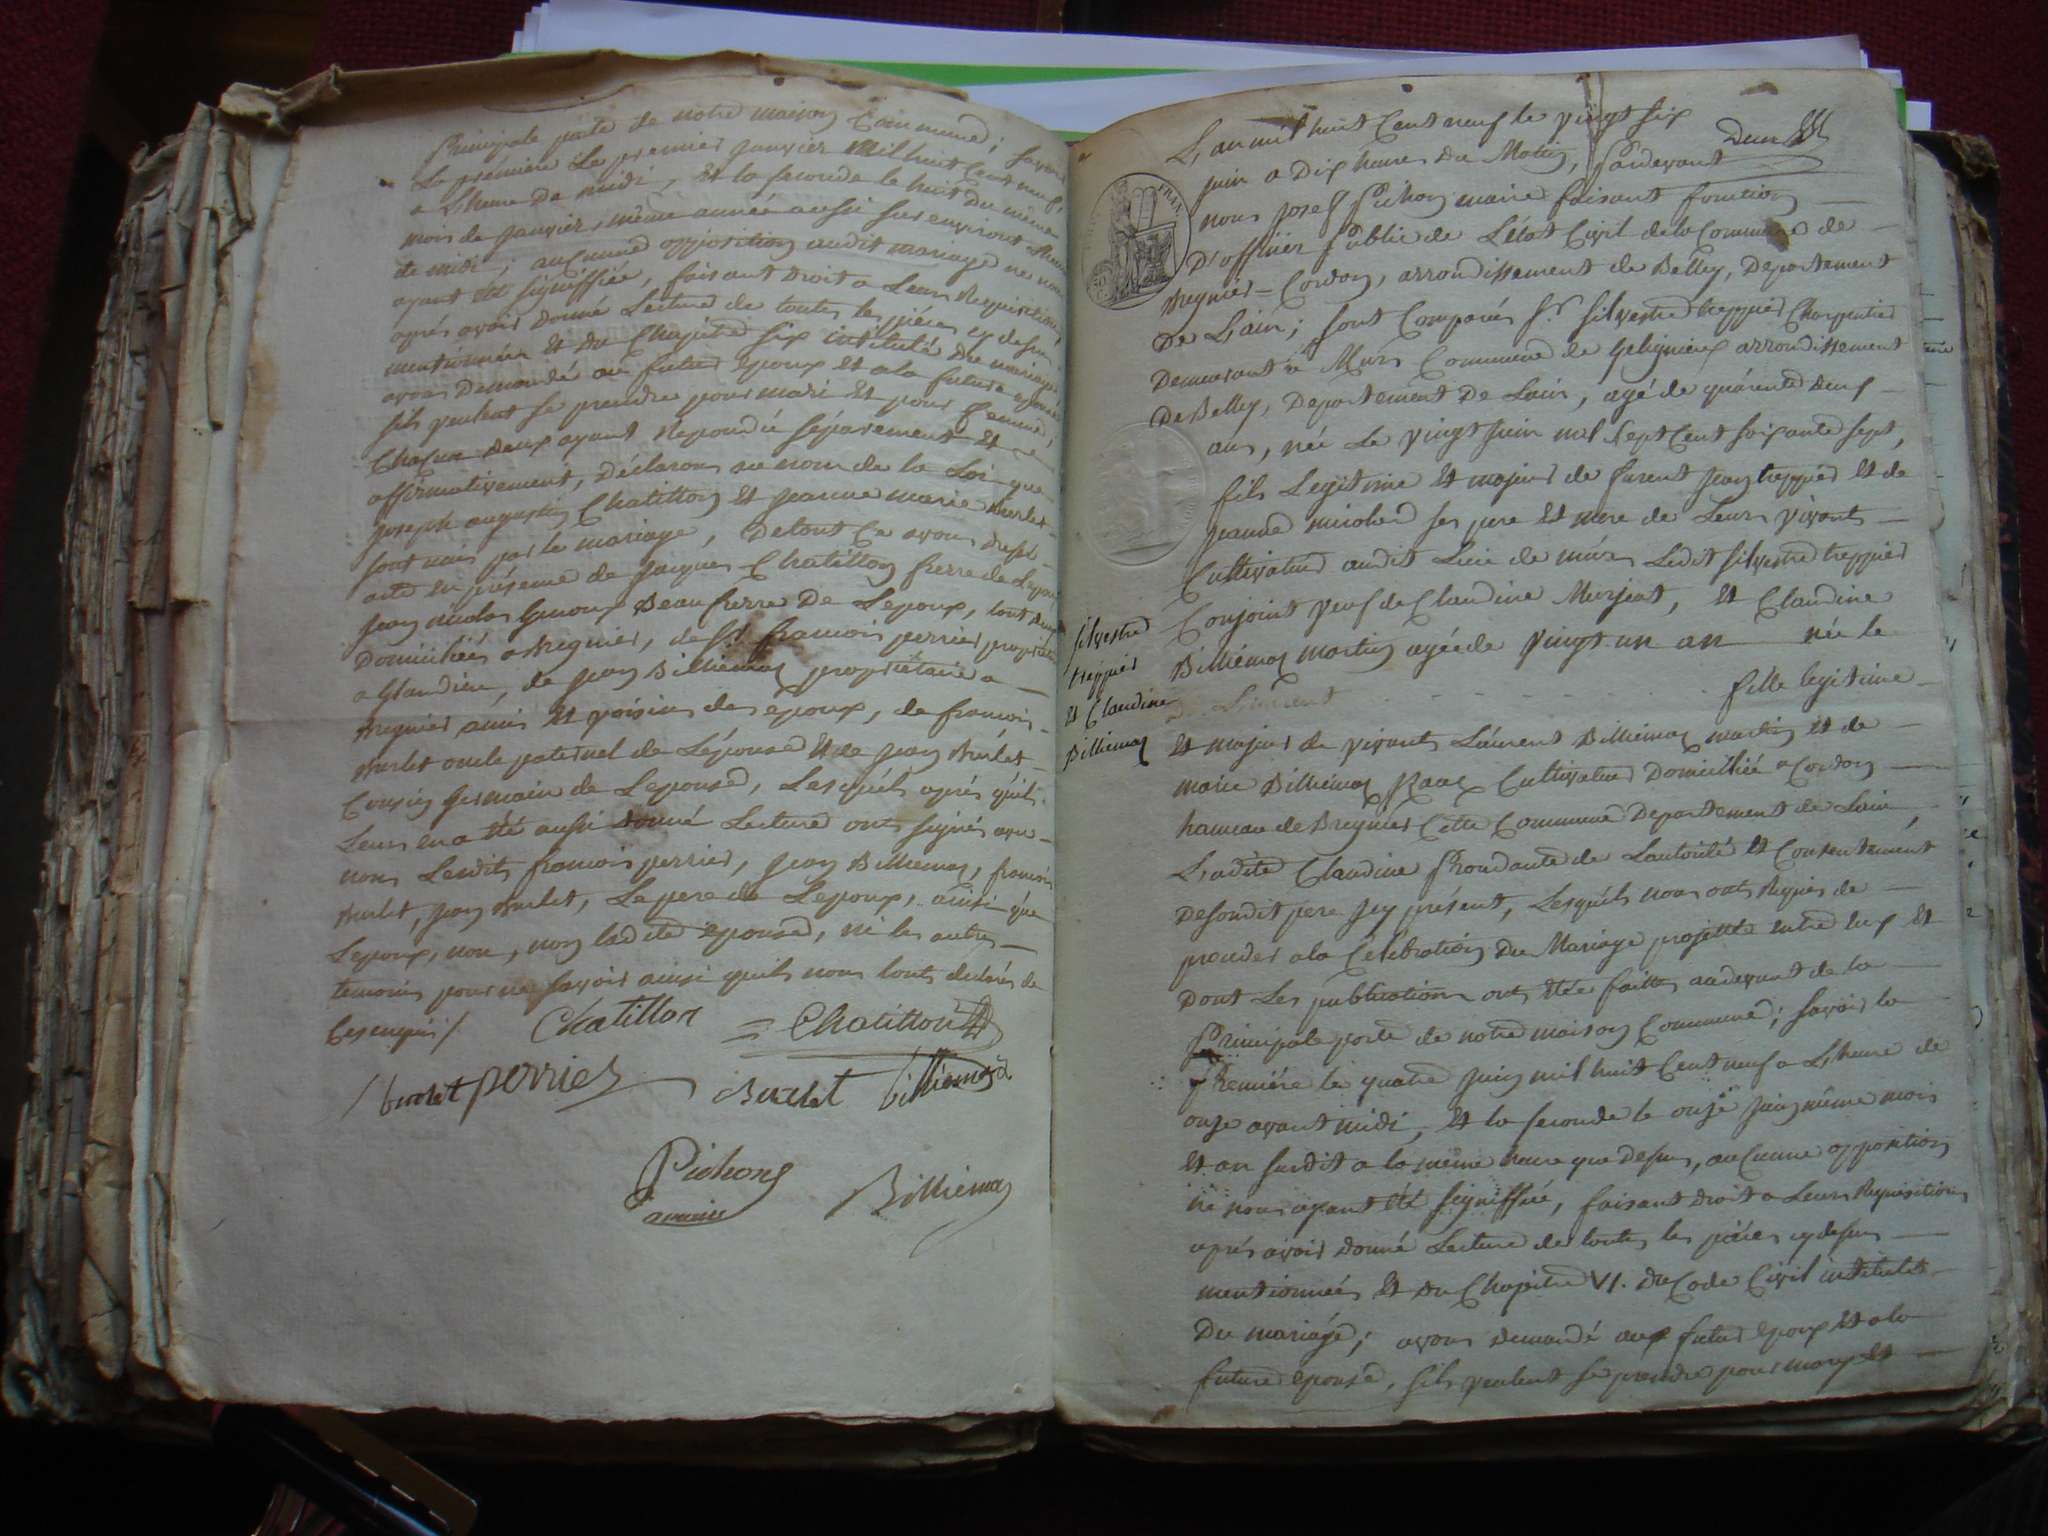 Principale porte de notre maison Commune; savoir
La première Le premier Janvier mil huit Cent neuf,
a L'heure de midi, Et la seconde le huit du même
mois de Janvier, même année aussi sur environt
de midi; aucune opposition audit mariage ne nous
ayant été signiffiée, faisant droit a Leur Requisition,
aprés avoir donné Lecture de toutes les piéces cy dessus
mentionnées Et du Chapitre six intitulé du mariage
avons Demandé au futur epoux et a la future epouse
s'ils veulent se prendre pour mari Et pour femme,
Chacun deux ayant Repondu séparement Et
affirmativement, Déclarons au nom de la Loi que
Joseph augustin Chatillon Et Jeanne marie Burlet
sont unis par le mariage, De tout Ce avons dressé
acte En présence de Jacques Chatillon frerre de Lepoux
Jean nicolas Beaufrerre De Lepoux, tout deux
Domiciliés a Bregnier, de Sr francois perrier propriétaire
a Glandieu, de Jean Billiemaz propriétaire a
Bregnier amis Et voisins des epoux, de francois
Burlet oncle paternel de Lépouse Et de Jean Burlet
Cousin Germain de Lepouse, Lesquéls aprés qu'il
Leurs en a été aussi donné Lecture ont signés avec
nous Lesdits francois perrier, Jean Billiemaz, francois
Burlet, Jean Burlet, Le pere de Lepoux, ainsi que
Lepoux, non, non ladite epouse, ni les autres
temoins pour ne savoir ainsi quils nous lonts declarés de
Ce enquis /. Chatillon = Chatillon
burlet perrier Burlet billiemaz
Pichon
maire Billiemaz
L'an mil huit Cent neuf le vingt six
Juin a Dix heures du Matin, Pardevant
nous Josef Pichon maire faisant fonction
D'officier Public de L'état Civil de la Commune de
Bregnier-Cordon, arrondissement de Belley, Departement
De L'ain; sont Comparus Sr. Silvestre treppier Charpentier
Demeurant a Murs Commune de Gelignieux arrondissement
De Belley, Departement De Lain, agé de quarente deux
ans, née Le vingt Juin mil Sept Cent soixante sept,
fils Legitime Et majeur de furent Jean treppier Et de
Jeanne ses pere Et mere de Leurs vivants
Cultivateur audit Lieu de murs Ledit Silvestre treppier
Conjoint veuf de Claudine Murjeat, Et Claudine
Billiémaz martin agée de vingt un an née le
fille legitime
Et majeur de vivants Laurent Billiémaz martin et de
marie Billiémaz Cultivateur Domicilliée a Cordon
hameau de Bregnier Cette Commune Departement de Lain,
Ladite Claudine de L'autorité Et Consentement
De sondit pere Jcy présent, Lesquéls nous onts Requis de
proceder a la Célébration Du Mariage projetté entre eux Et
Dont Les publications onts étée faittes audevant de la
Principale porte de notre maison Commune; savoir la
Premiére le quatre Juin mil huit Cent neuf a L'heure de
onze avant midi, Et la seconde le onze Juin même mois
Et an susdit a la même heure que dessus, aucunne opposition
ne nous ayant été signiffiée, faisant droit a Leurs Requisitions
aprés avoir donné Lecture de toutes les piéces cy dessus
mentionnées Et du Chapitre VI. du Code Civil intitulét
Du mariage; avons demandé aux futur epoux Et a la
future épouse, s'ils veulent se prendre pour mary Et
Silvestre
treppier
Et Claudine
Billiemaz